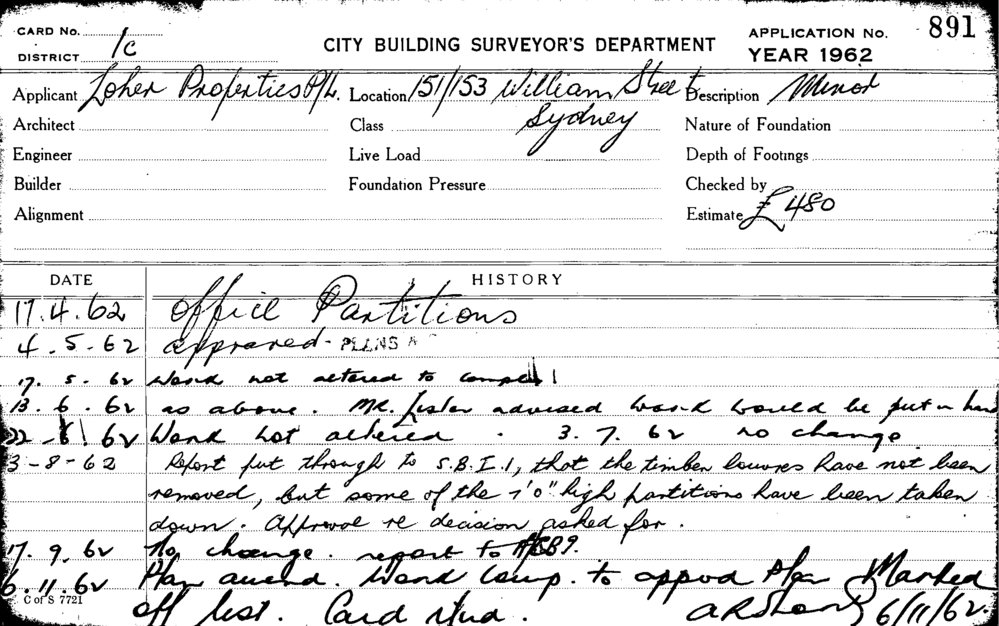 CARD No.
891
DISTRICT 1c
CITY BUILDING SURVEYOR'S DEPARTMENT
APPLICATION No.
YEAR 1962
Applicant Loher Properties P/L. Location 151/153 William Street Sydney Description Minor
Architect Class Nature of Foundation
Engineer Live Load Depth of Footings
Builder Foundation Pressure Checked by
Alignment Estimate £480
DATE HISTORY
17.4.62 Office Partitions
4.5.62 approved - PLANS
17.5.62 Work not altered to
13.6.62 as above. Mr. Lister advised work would be put in hand
22-6-62 Work not altered. 3.7.62 no change
3-8-62 Report put through to S.B.I.1, that the timber louvres have not been
removed, but some of the 7'0" high partitions have been taken
down. Approval re decision asked for.
17.9.62 No change. report to
6.11.62 Plan amend. Work comp. to approd plan Marked
C of S 7721
off list. Card 6/11/62.